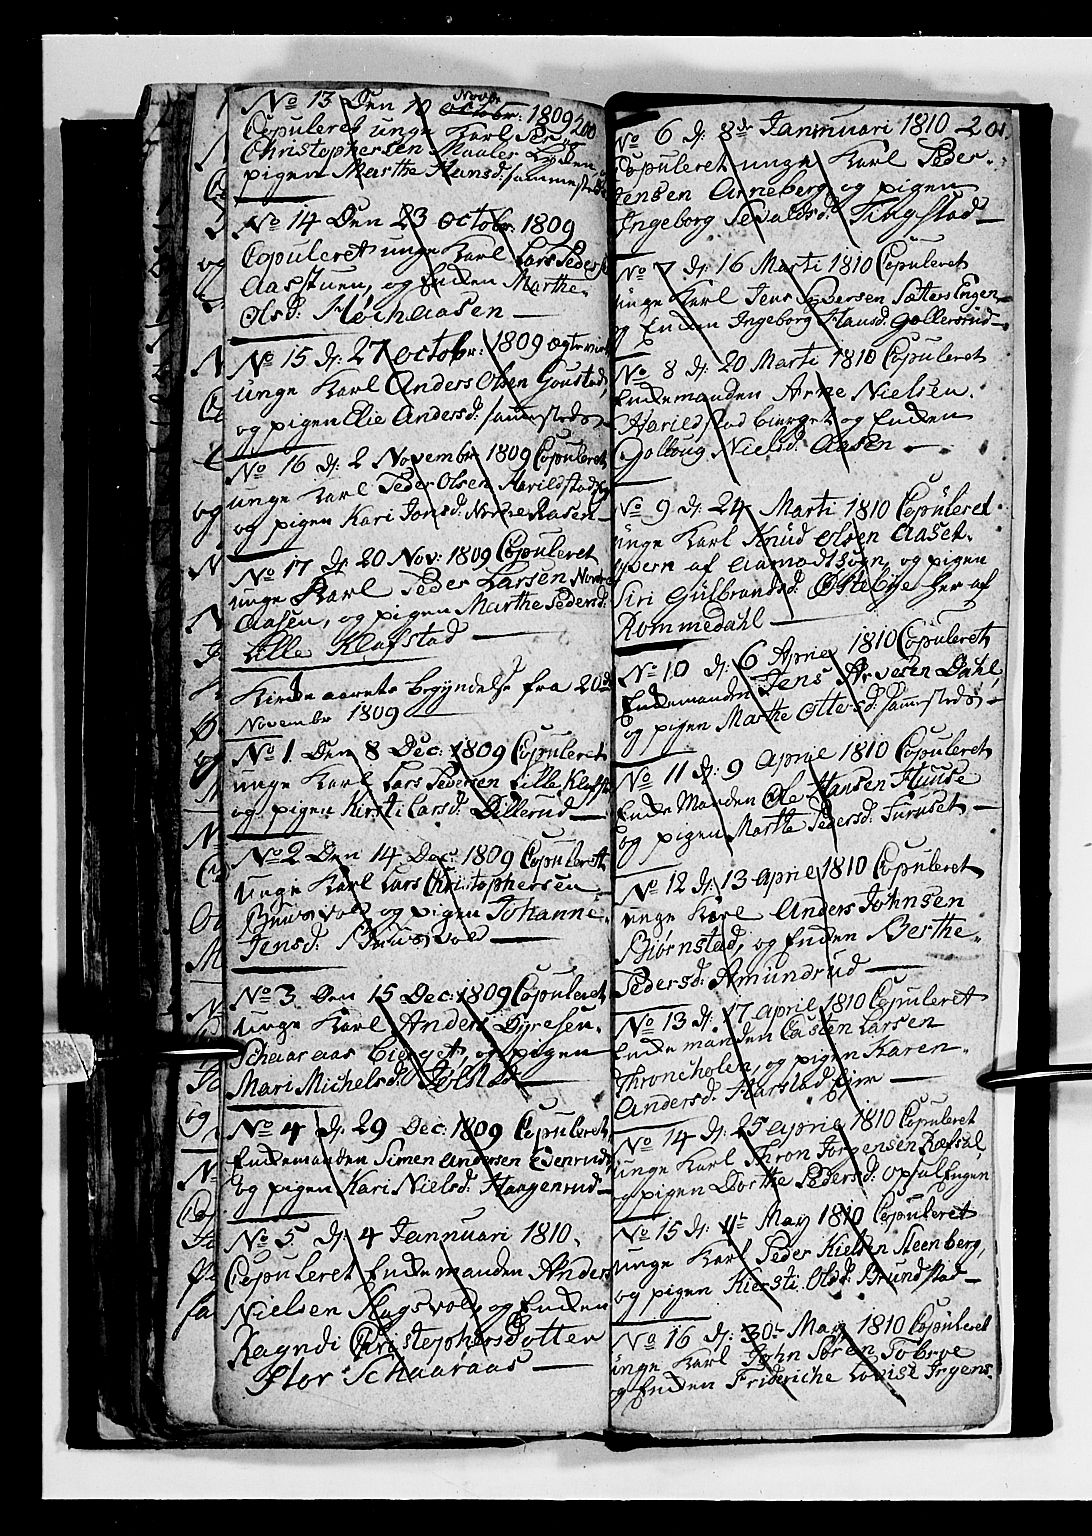 No 13 Den 10 Novbr: octobr: 1809 200
Copuleret unge Karl Peder
Christophersen Maaler Lyden, og
pigen Marthe Hansd: sammesteds
No 14 Den 23 octobr: 1809
Copuleret unge Karl Lars Peders:
Aasstuen, og Enken Marthe
Olsd: Høichaasen
No 15 dj: 27 octobr: 1809 ægteviet
unge Karl Anders Olsen Goustad,
og pigen Elie Andersd: sammesteds
No 16 dj: 2 Novembr: 1809 Copuleret
unge Karl Peder Olsen Harildstad
og pigen Kari Jonsd: Norre Aasen
No 17 dj 20 Nov: 1809 Copuleret
unge Karl Peder Larsen Nordre
Aasen, og pigen Marthe Pedersd:
Lille Klafstad
Kirke aarets begyndelse fra 20de
November 1809
No 1. Den 8 Dec: 1809 Copuleret
unge Karl Lars Pedersen Lille Klafst:
og pigen Kirsti Larsd: Dillerud
No 2 Den 14 Dec: 1809 Copuleret
unge Karl Lars Christophersen
Bruusvold og pigen Johanne
Jensd: Bruusvold
No 3 Den 15 Dec: 1809 Copuleret
unge Karl Anders Dyresen
Schaaraas bierget, og pigen
Mari Michelsd: Sølstad
No 4 dj: 29 Dec: 1809 Copuleret
Enkemanden Simen Andersen Edenrud,
og pigen Kari Nielsd: Haagenrud
No 5 dj 4 Jannuari 1810.
Copuleret Enkemanden Anders
Nielsen Slagsvold, og Enken
Ragndi Christophersdotter
Stor Schaaraas
No 6 dj: 8de Jannuari 1810 201.
Copuleret unge Karl Peder
Jensen Arneberg, og pigen
Ingeborg Sevaldsd: Tingstad
No 7 dj 16 Marti 1810 Copuleret
unge Karl Jens Syversen Sæters Engen
og Enken Ingeborg Hansd: Gollersrud
No 8 dj: 20 Marti 1810 Copuleret
Enkemanden Arne Nielsen
Harildstad bierget og Enken
Golloug Nielsd: Aasen
No 9 dj: 24 Marti 1810 Copuleret
unge Karl Knud Olsen Aaset
yvern af Aamodt sogn, og pigen
Siri Gulbrandsd: Østebye her af
Rommedahl
No 10 dj: 6 Aprie 1810 Copuleret
Enkemanden Jens Arvesen Dahl,
og pigen Marthe Ottersd: sammesteds
No 11 dj: 9 Aprie 1810 Copuleret
Enke Manden Ole Hansen Huuse
og pigen Marthe Pedersd: Furuset
No 12 dj: 13 aprie 1810 Copuleret
unge Karl Anders Johnsen
Biørnstad, og Enken Berthe
Pedersd: Amundrud
No 13 dj: 17 aprie 1810 Copuleret
Enkemanden Casten Larsen
Throncholen, og pigen Karen
Andersd: Harstad Ejer
No 14 dj: 25 aprie 1810 Copuleret
unge Karl Thron Jørgensen Røssdal
og pigen Dorthe Pedersd: Opsal Engen
No 15 dj: 11te May 1810 Copuleret
unge Karl Peder Kielsen Steenberg,
og pigen Kiersti Olsd: Brundstad
No 16 dj: 30te May 1810 Copuleret
unge Karl John Søren Tobroe
og Enken Friderliche Lovise Irgens.